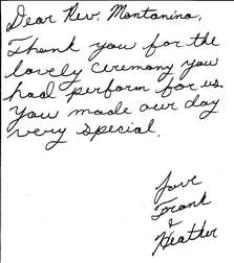 Dear Rev. Montanino,
Thank you for the
lovely ceremony you
had perform for us.
You made our day
very special.
Love
Frank
&
Heather